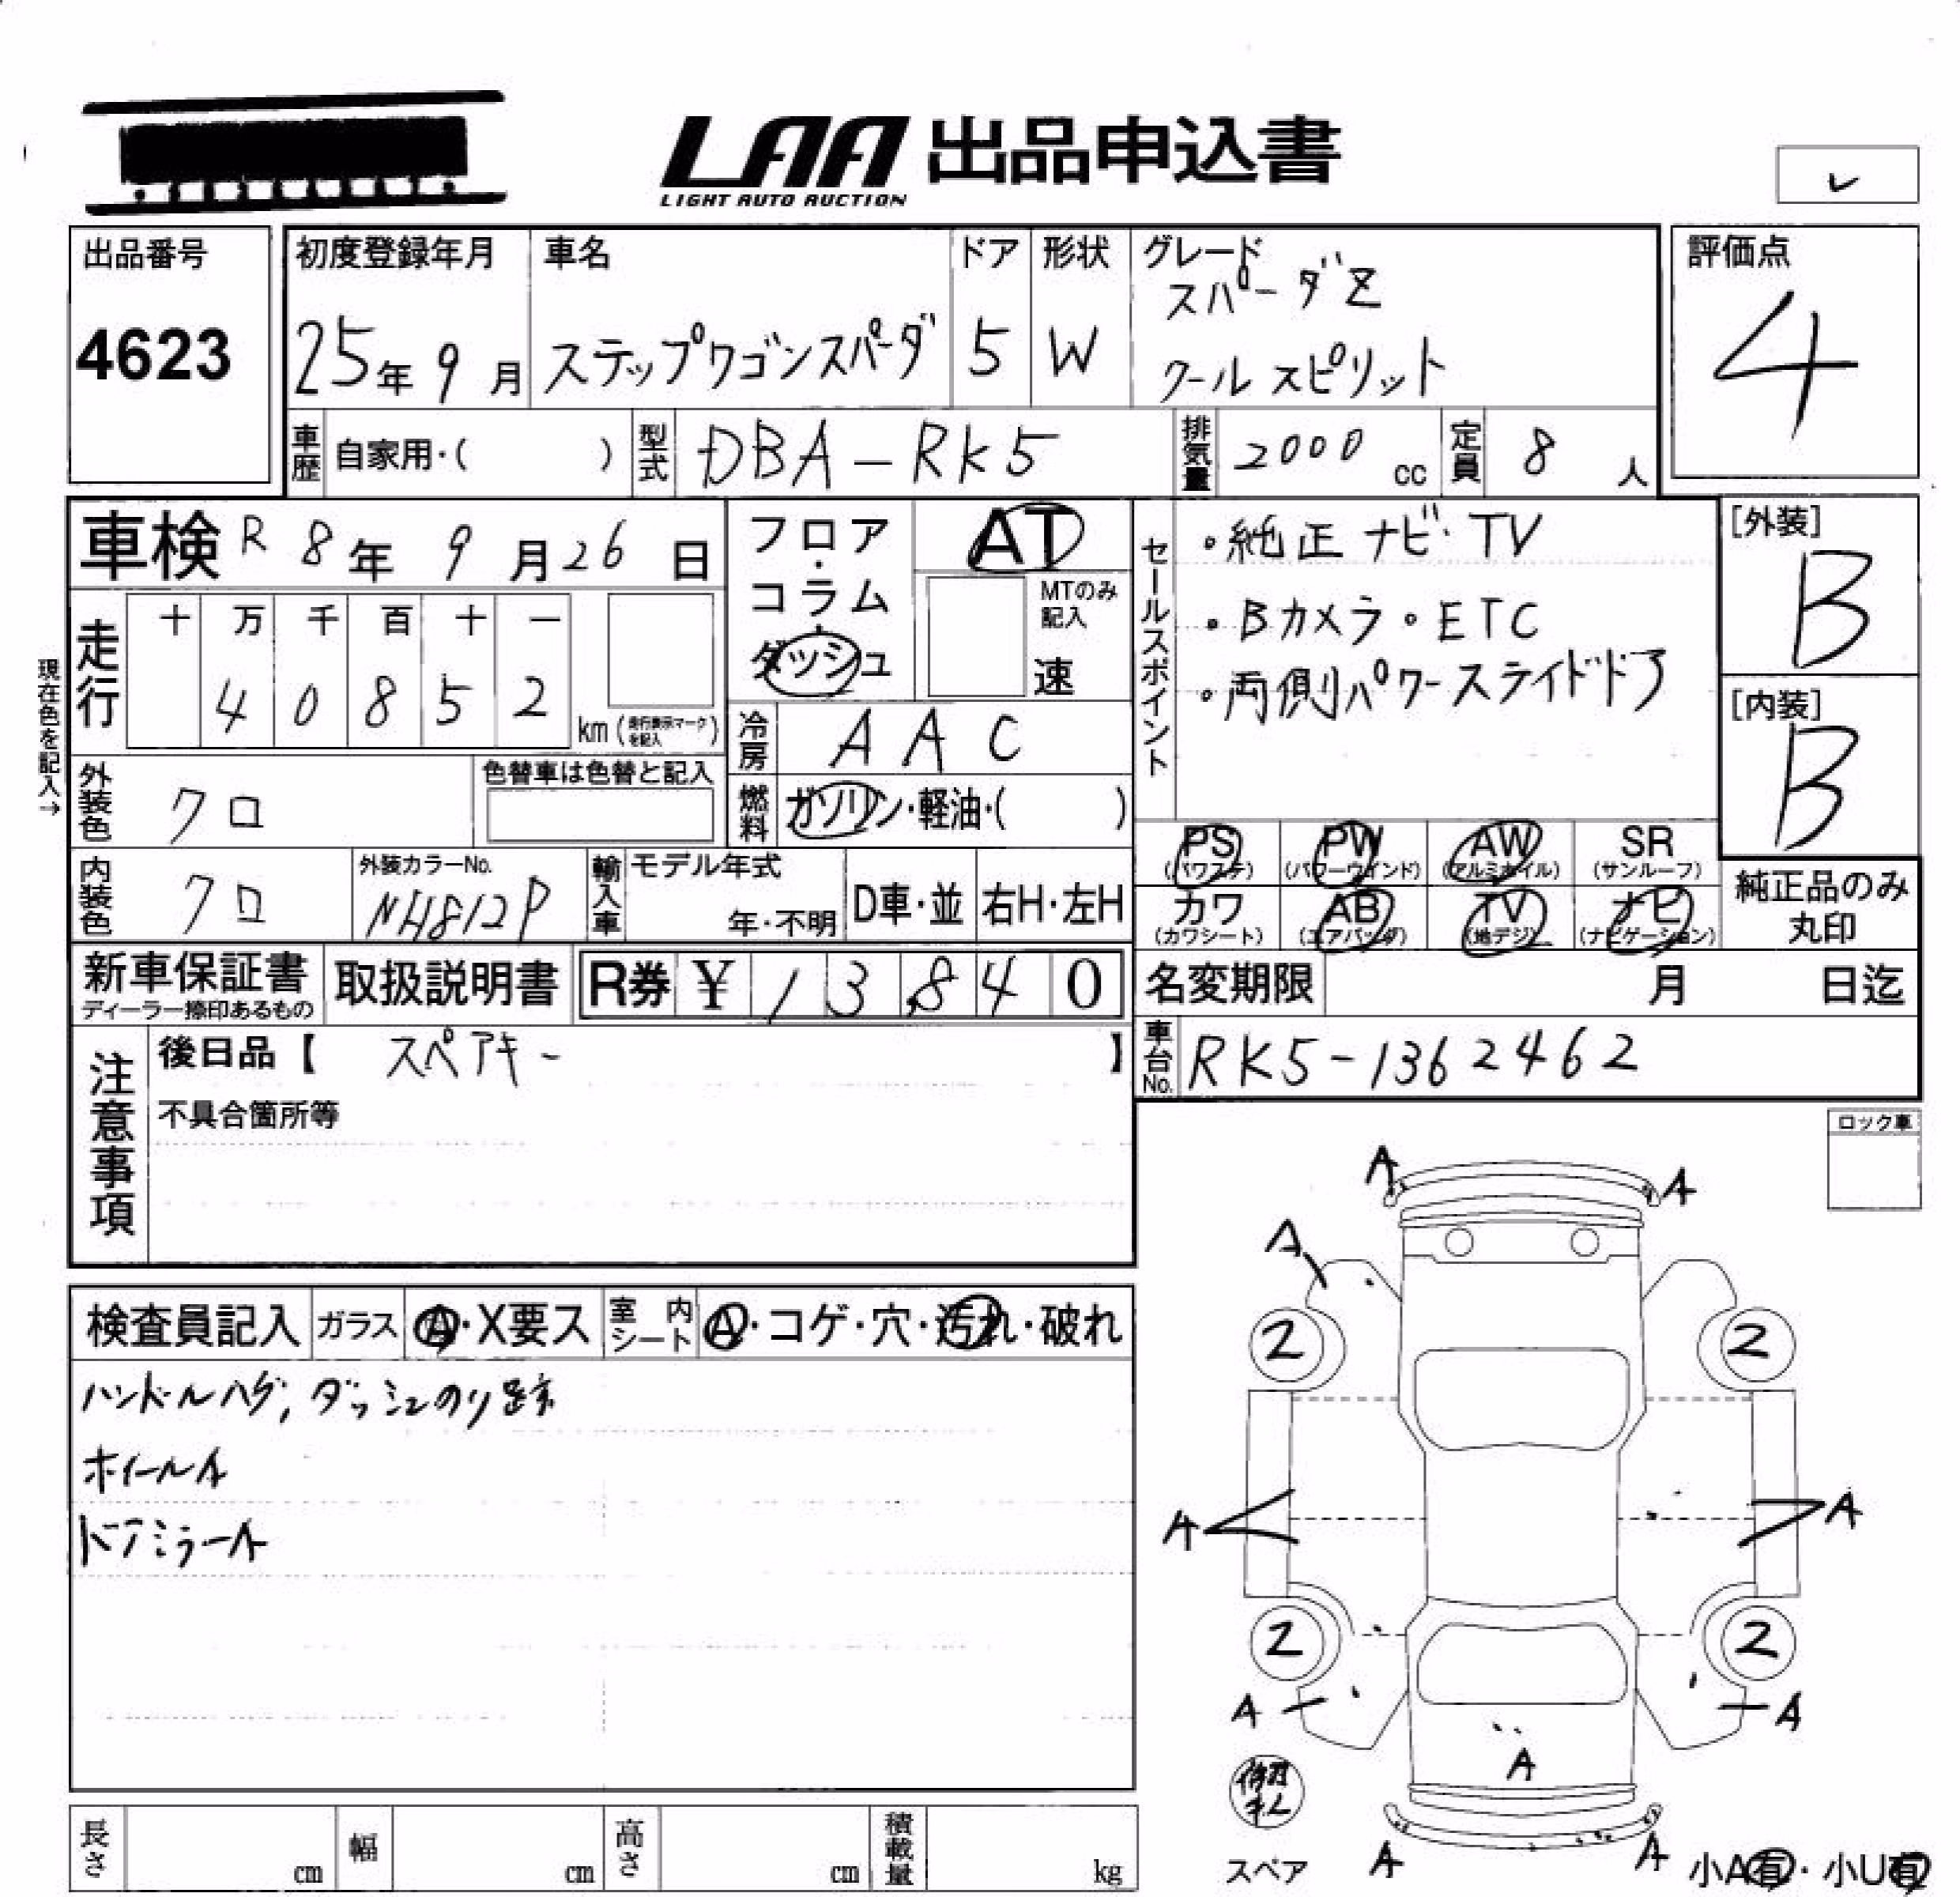 LAA 出品申込書
LIGHT AUTO AUCTION
出品番号
4623
初度登録年月
25年9月
車名
ステップワゴンスパーダ
ドア
5
形状
W
グレード
スパーダZ
クールスピリット
評価点
4
車歴 自家用・( )
型式 DBA-RK5
排気量 2000 cc
定員 8 人
車検 R 8年 9月26日
フロア・コラム・ダッシュ
AT
MTのみ記入
速
走行
十 万 千 百 十 一
4 0 8 5 2
km (走行表示マークを記入)
現在色を記入→
冷房 AAC
燃料 ガソリン・軽油・( )
外装色 クロ
色替車は色替と記入
内装色 クロ
外装カラーNo.
NH812P
輸入車
モデル年式
年・不明
D車・並
右H・左H
セールスポイント
・純正ナビ・TV
・Bカメラ・ETC
・両側パワースライドドア
[外装]
B
[内装]
B
PS (パワステ)
PW (パワーウインド)
AW (アルミホイル)
SR (サンルーフ)
カワ (カワシート)
AB (エアバッグ)
TV (地デジ)
ナビ (ナビゲーション)
純正品のみ丸印
新車保証書
ディーラー捺印あるもの
取扱説明書
R券 ¥ 13,840
名変期限 月 日迄
車台No. RK5-1362462
注意事項
後日品【 スペアキー 】
不具合箇所等
ロック車
検査員記入
ガラス A・X要ス
室内シート A・コゲ・穴・汚れ・破れ
ハンドルハゲ, ダッシュのり跡
ホイールA
ドアミラーA
A
A
A
2
2
A
A
2
2
A
A
A
A
A
スペア
小A有・小U有
長さ cm
幅 cm
高さ cm
積載量 kg